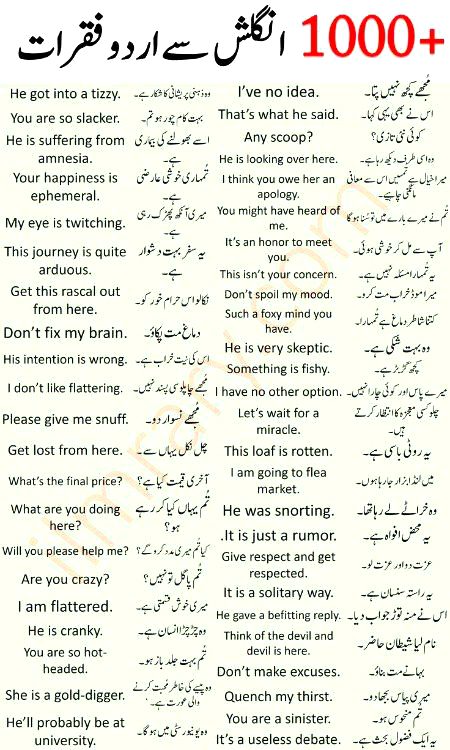 1000+ انگلش سے اردو فقرات
He got into a tizzy. وہ ذہنی پریشانی کا شکار ہے۔
You are so slacker. بہت کام چور ہو تم۔
He is suffering from
amnesia. اسے بھولنے کی بیماری
ہے۔
Your happiness is
ephemeral. تمہاری خوشی عارضی
ہے۔
My eye is twitching. میری آنکھ پھڑک رہی
ہے۔
This journey is quite
arduous. یہ سفر بہت دشوار
ہے۔
Get this rascal out
from here. نکالو اس حرام خور کو۔
Don't fix my brain. دماغ مت پکاؤ۔
His intention is wrong. اس کی نیت خراب ہے۔
I don't like flattering. مجھے چاپلوسی پسند نہیں۔
Please give me snuff. مجھے نسوار دو۔
Get lost from here. چل نکل یہاں سے۔
What's the final price? آخری قیمت کیا ہے؟
What are you doing
here? تم یہاں کیا کر رہے
ہو؟
Will you please help me? کیا تم میری مدد کرو گے؟
Are you crazy? تم پاگل تو نہیں؟
I am flattered. میری خوش قسمتی ہے۔
He is cranky. وہ چڑچڑا انسان ہے۔
You are so hot-
headed. تم بہت جلد باز ہو۔
She is a gold-digger. وہ پیسے کی خاطر محبت کرنے
والی عورت ہے۔
He'll probably be at
university. وہ یونیورسٹی میں ہو گا۔
I've no idea. مجھے کچھ نہیں پتا۔
That's what he said. اس نے بھی یہی کہا۔
Any scoop? کوئی نئی تازی؟
He is looking over here. وہ اسی طرف دیکھ رہا ہے۔
I think you owe her an
apology. میرا خیال ہے تمہیں اس سے معافی
مانگنی چاہیے۔
You might have heard of
me. تم نے میرے بارے میں تو سنا ہو گا
It's an honor to meet
you. آپ سے مل کر خوشی ہوئی۔
This isn't your concern. یہ تمہارا مسئلہ نہیں ہے۔
Don't spoil my mood. میرا موڈ خراب مت کرو۔
Such a foxy mind you
have. کتنا شاطر دماغ ہے تمہارا۔
He is very skeptic. وہ بہت شکی ہے۔
Something is fishy. کچھ گڑبڑ ہے۔
I have no other option. میرے پاس اور کوئی چارا نہیں۔
Let's wait for a
miracle. چلو کسی معجزہ کا انتظار کرتے
ہیں۔
This loaf is rotten. یہ روٹی باسی ہے۔
I am going to flea
market. میں لنڈا بازار جا رہا ہوں۔
He was snorting. وہ خراٹے لے رہا تھا۔
.It is just a rumor. یہ محض افواہ ہے۔
Give respect and get
respected. عزت دو اور عزت لو۔
It is a solitary way. یہ راستہ سنسان ہے۔
He gave a befitting reply. اس نے منہ توڑ جواب دیا۔
Think of the devil and
devil is here. نام لیا شیطان حاضر۔
Don't make excuses. بہانے مت بناؤ۔
Quench my thirst. میری پیاس بجھا دو۔
You are a sinister. تم منحوس ہو۔
It's a useless debate. یہ ایک فضول بحث ہے۔